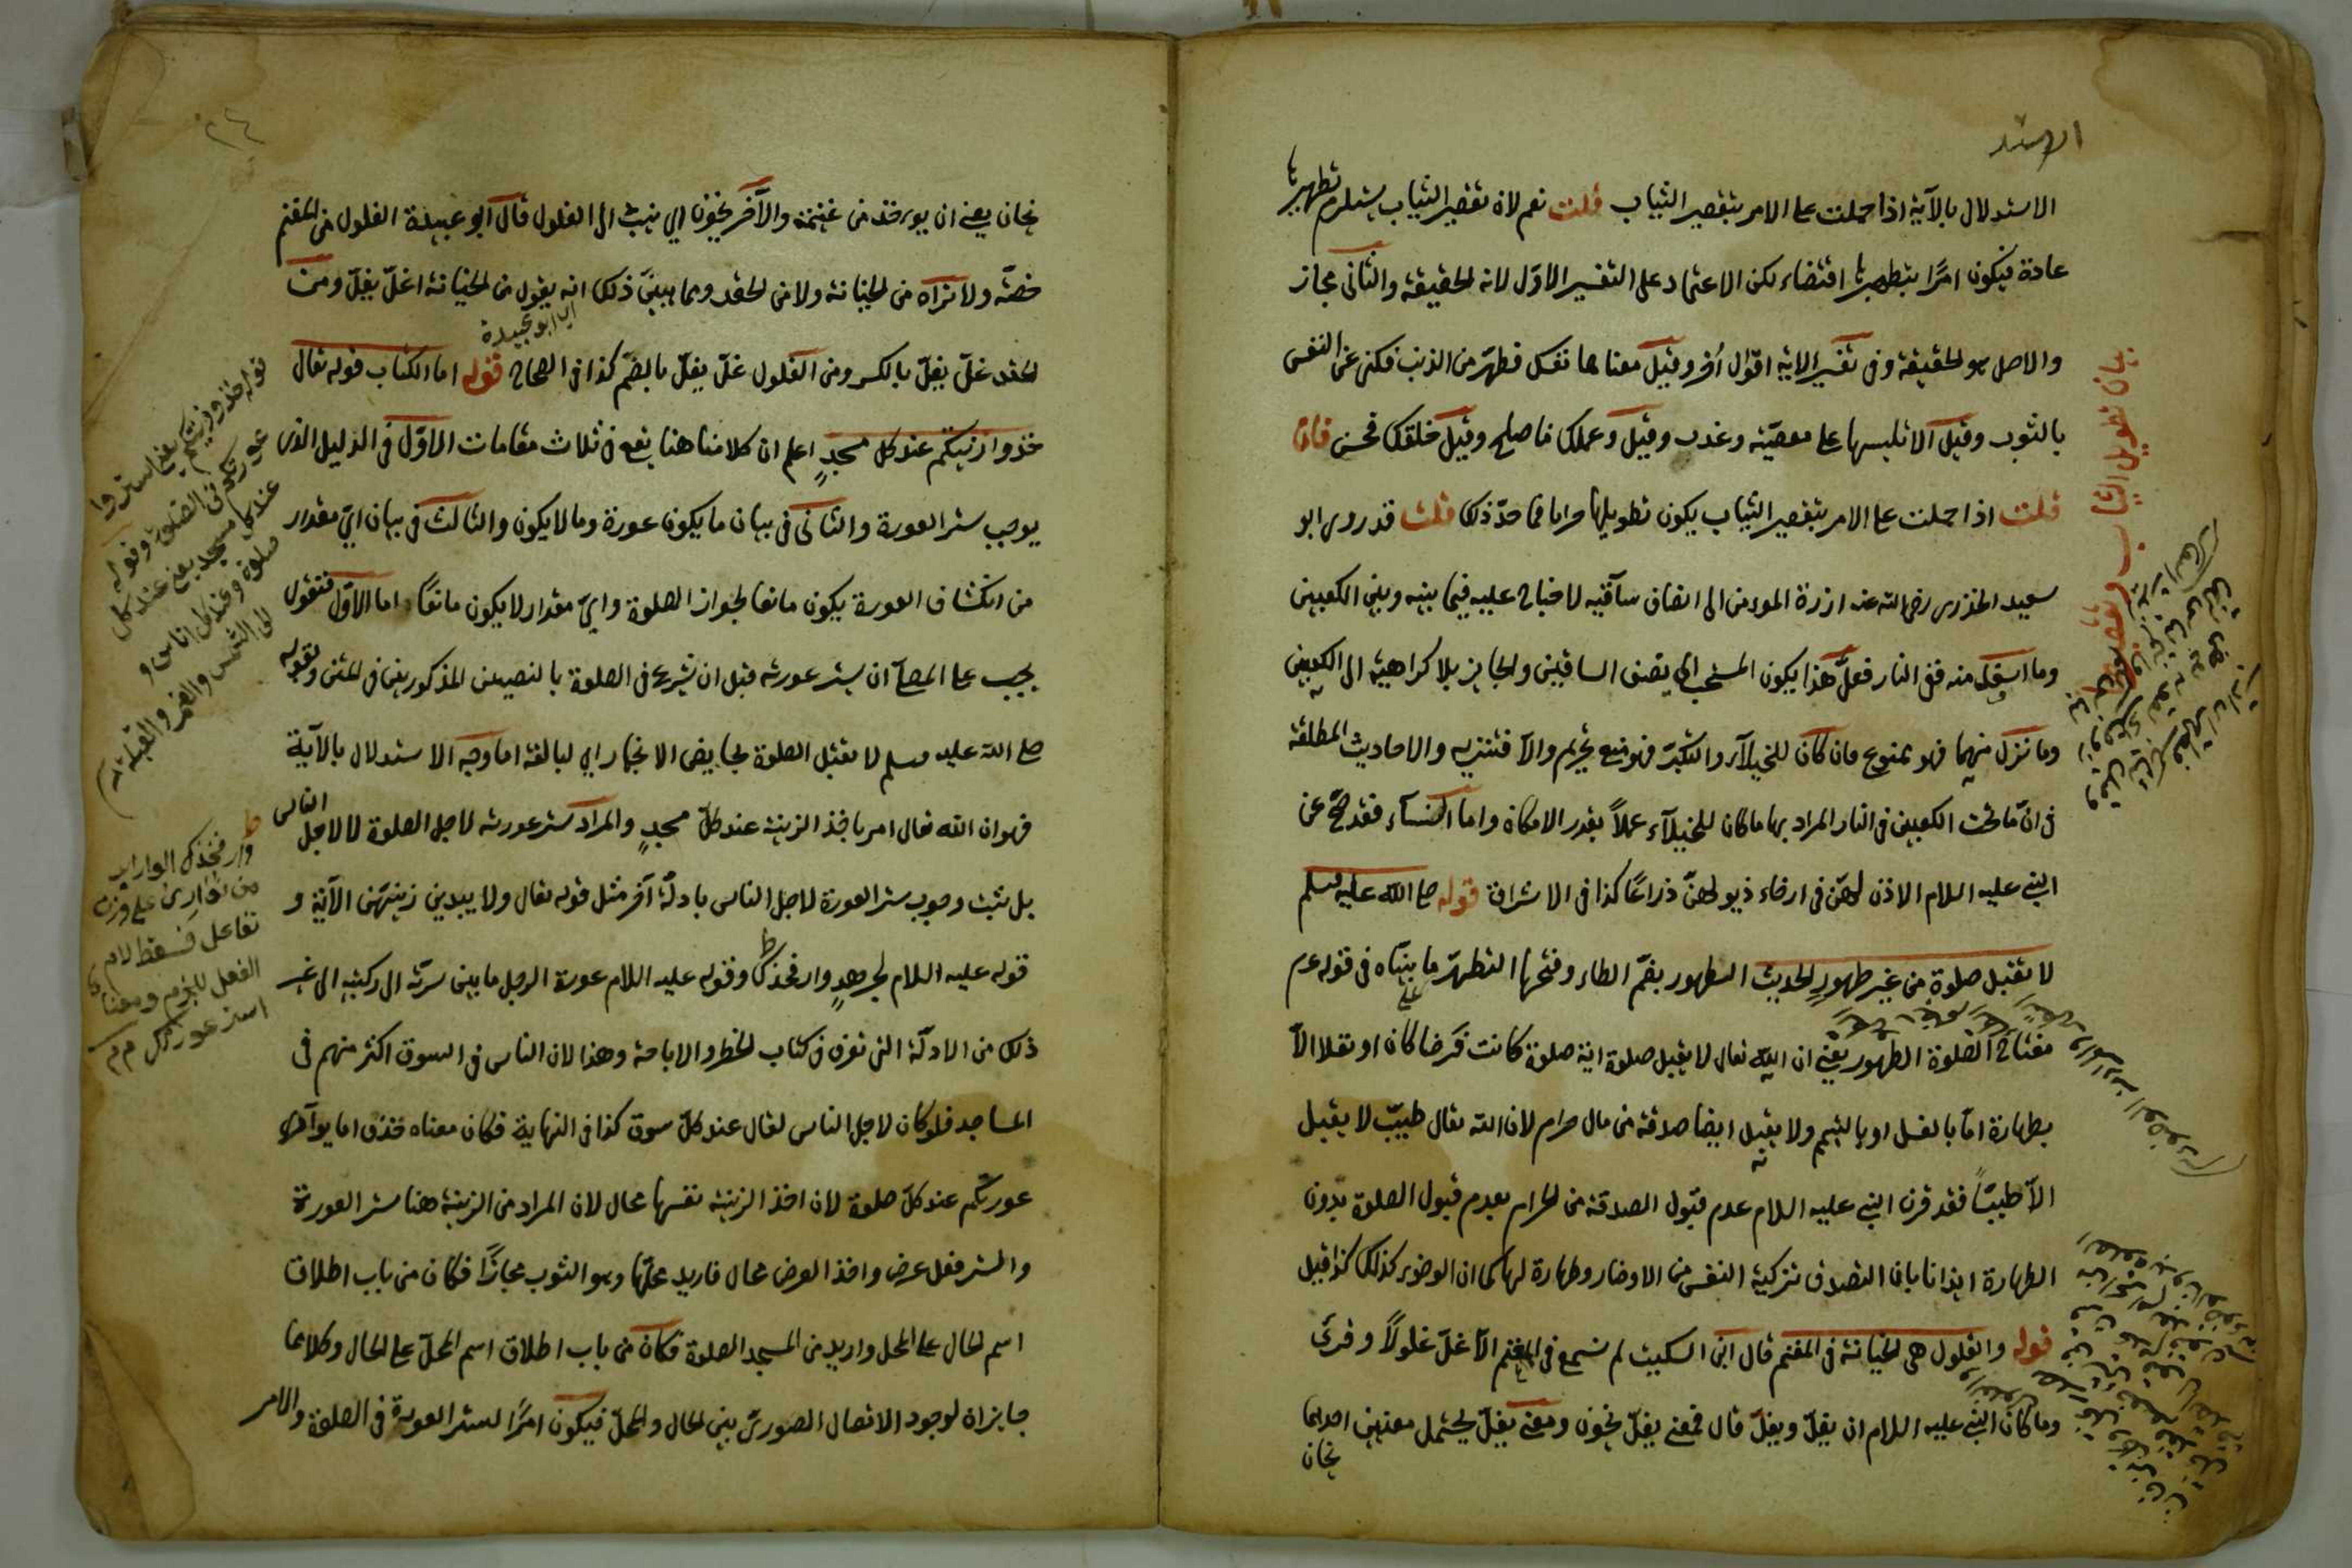 الاستد
الاستدلال بالآية اذا حملت على الامر بتقصير الثياب قلت نعم لان تقصير الثياب يستلزم تطهيرها
عادة فيكون امرًا بتطهيرها اقتضاء لكن الاعتماد على التفسير الاوّل لانه الحقيقة والثانى مجاز
والاصل هو الحقيقة وفى تفسير الاية اقوال اُخر وقيل معناها نفسك فطهّر من الذنب فكنى عن النفس
بالثوب وقيل الا تلبسها على معصيّة وغدر وقيل وعملك فاصلح وقيل خلقك فحسن فان
قلت اذا حملت على الامر بتقصير الثياب يكون تطويلها حراما فما حدّ ذلك قلت قد روى ابو
سعيد الخذرى رضى الله عنه ازرة المومن الى انصاف ساقيه لا جناح عليه فيما بينه وبين الكعبين
وما اسفل منه ففى النار فعلى هذا يكون المستحب الى نصف الساقين والجايز بلا كراهية الى الكعبين
وما نزل منهما فهو ممنوع فان كان للخيلآء والتكبّر فهو منع تحريم والا فتنزيه والاحاديث المطلقة
فى انّ ما تحت الكعبين فى النار المراد بها ما كان للخيلآء عملاً بقدر الامكان واما النسآء فقد صحّ عن
النبى عليه السلام الاذن لهنّ فى ارخاء ذيولهنّ ذراعًا كذا فى الاشراق قوله صلى الله عليه وسلم
لا تقبل صلوة من غير طهور الحديث الطهور بضمّ الطاء وفتحها التطهّر ما بيّناه فى قوله عم
مفتاح الصّلوة الطهور يعنى ان الله تعالى لا يقبل صلوة اية صلوة كانت فرضا كان او نفلا الاّ
بطهارة امّا بالغسل او بالتيمم ولا يقبل ايضا صدقة من مال حرام لان الله تعالى طيّب لا يقبل
الاّ طيبًا فقد قرن النبى عليه السلام عدم قبول الصدقة من الحرام بعدم قبول الصلوة بدون
الطهارة ايذانا بان التصدق تزكية النفس من الاوضار وطهارة لها كما ان الوضوء كذلك كذا قيل
قوله والغلول هى الخيانة فى المغنم قال ابن السكيت لم نسمع فى المغنم الاّ غلّ غلولاً وقرئ
وما كان النبى عليه السلام ان يغلّ ويغلّ قال فمعنى يغلّ يخون ومعنى يغلّ يحتمل معنيين احدهما
يخان
بيان تطويل الثياب وتقصيرها
٢٤
يخان يعنى ان يوءخذ من غنيمته والآخر يخون اى ينسب الى الغلول قال ابو عبيدة الغلول من المغنم
خاصّة ولا نراه من الخيانة ولا من الحقد ومما يبيّن ذلك انه يقول من الخيانة اغلّ يغلّ ومن
اى ابو عبيدة
الحقد غلّ يغلّ بالكسر ومن الغلول غلّ يغلّ بالضمّ كذا فى الصحاح قوله اما الكتاب فوله تعالى
خذوا زينتكم عند كل مسجدٍ اعلم ان كلامنا هنا يقع فى ثلاث مقامات الاوّل فى الدليل الذى
يوجب ستر العورة والثانى فى بيان ما يكون عورة وما لا يكون والثالث فى بيان اىّ مقدار
من انكشاف العورة يكون مانعا لجواز الصلوة واىّ مقدار لا يكون مانعًا اما الاوّل فنقول
يجب على المصلى ان يستر عورته قبل ان يشرع فى الصلوة بالنصين المذكورين فى المتن ولقوله
صلى الله عليه وسلم لا تقبل الصلوة لحايض الا بخمار اى لبالغة اما وجه الاستدلال بالآية
فهو ان الله تعالى امر باخذ الزينة عند كلّ مسجدٍ والمراد ستر عورته لاجل الصلوة لا لاجل الناس
بل يثبت وجوب ستر العورة لاجل الناس بادلّة آخر مثل قوله تعالى ولا يبدين زينتهنّ الآية و
قوله عليه السلام لجرهدٍ وار فخذك وقوله عليه السلام عورة الرجل ما بين سرّته الى ركبته الى غير
ذلك من الادلّة التى تعرف فى كتاب الحظر والاباحة وهذا لان الناس فى السوق اكثر منهم فى
المساجد فلو كان لاجل الناس لقال عند كلّ سوق كذا فى النهاية فكان معناه خذوا ما يوآرى
عورتكم عند كلّ صلوة لان اخذ الزينة نفسها محال لان المراد من الزينة هنا ستر العورة
والستر فعل عرض واخذ العرض محال فاريد محلّها وهو الثوب مجازًا فكان من باب اطلاق
اسم الحال على المحل واريد من المسجد الصلوة فكان من باب اطلاق اسم المحلّ على الحال وكلاهما
جايزان لوجود الاتصال الصورىّ بين الحال والمحلّ فيكون امرًا لستر العورة فى الصلوة والامر
قوله خذوا زينتكم يعنى استروا
عورتكم فى الصلوة وقوله
عند كل مسجد يعنى عند كل
صلوة وعند كل اناس و
الى الشمس والقمر والقبلة
وار فخذك الوار امر
من توارى على وزن
تفاعل فسقط لام
الفعل للجزم ومعناه
استر عورتك م م